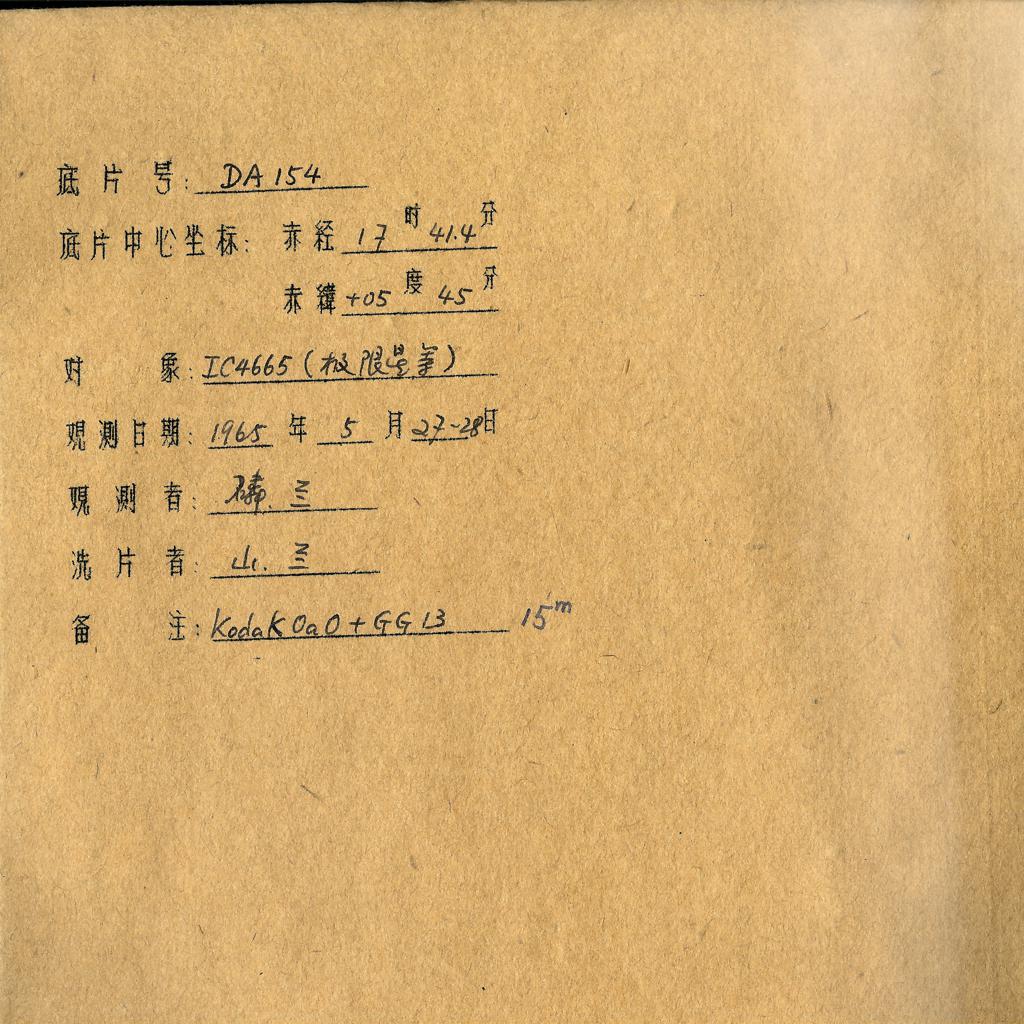 底片号: DA 154
底片中心坐标: 赤经 17 时 41.4 分
赤緯 +05 度 45 分
对象: IC4665 (极限星等)
观测日期: 1965 年 5 月 27-28日
观测者: 兰
洗片者: 山. 兰
备注: Kodak OaO + GG 13 15ᵐ